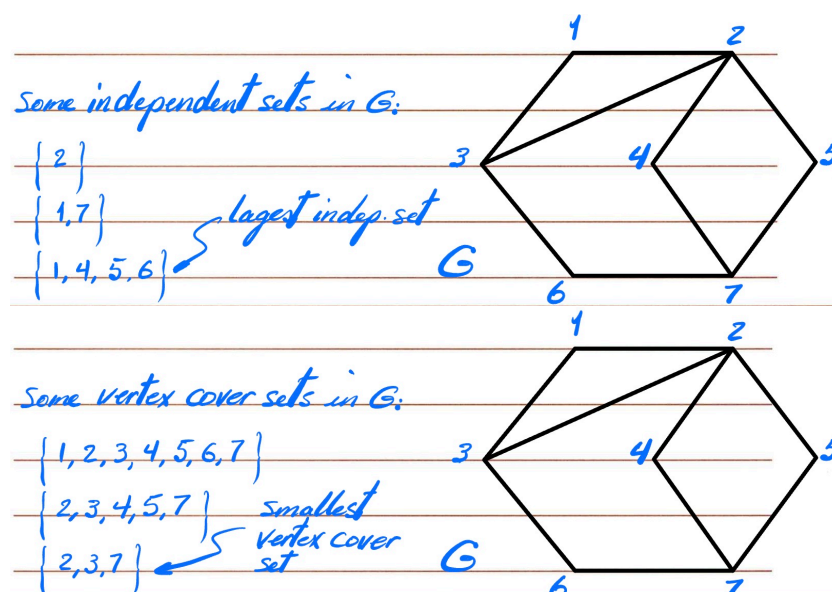 1 2
Some independent sets in G:
{2}
3 4 5
{1,7}
lagest indep. set
{1, 4, 5, 6}
G
6 7
1 2
Some vertex cover sets in G:
{1, 2, 3, 4, 5, 6, 7}
3 4 5
{2, 3, 4, 5, 7}
smallest
vertex cover
set
{2, 3, 7}
G
6 7